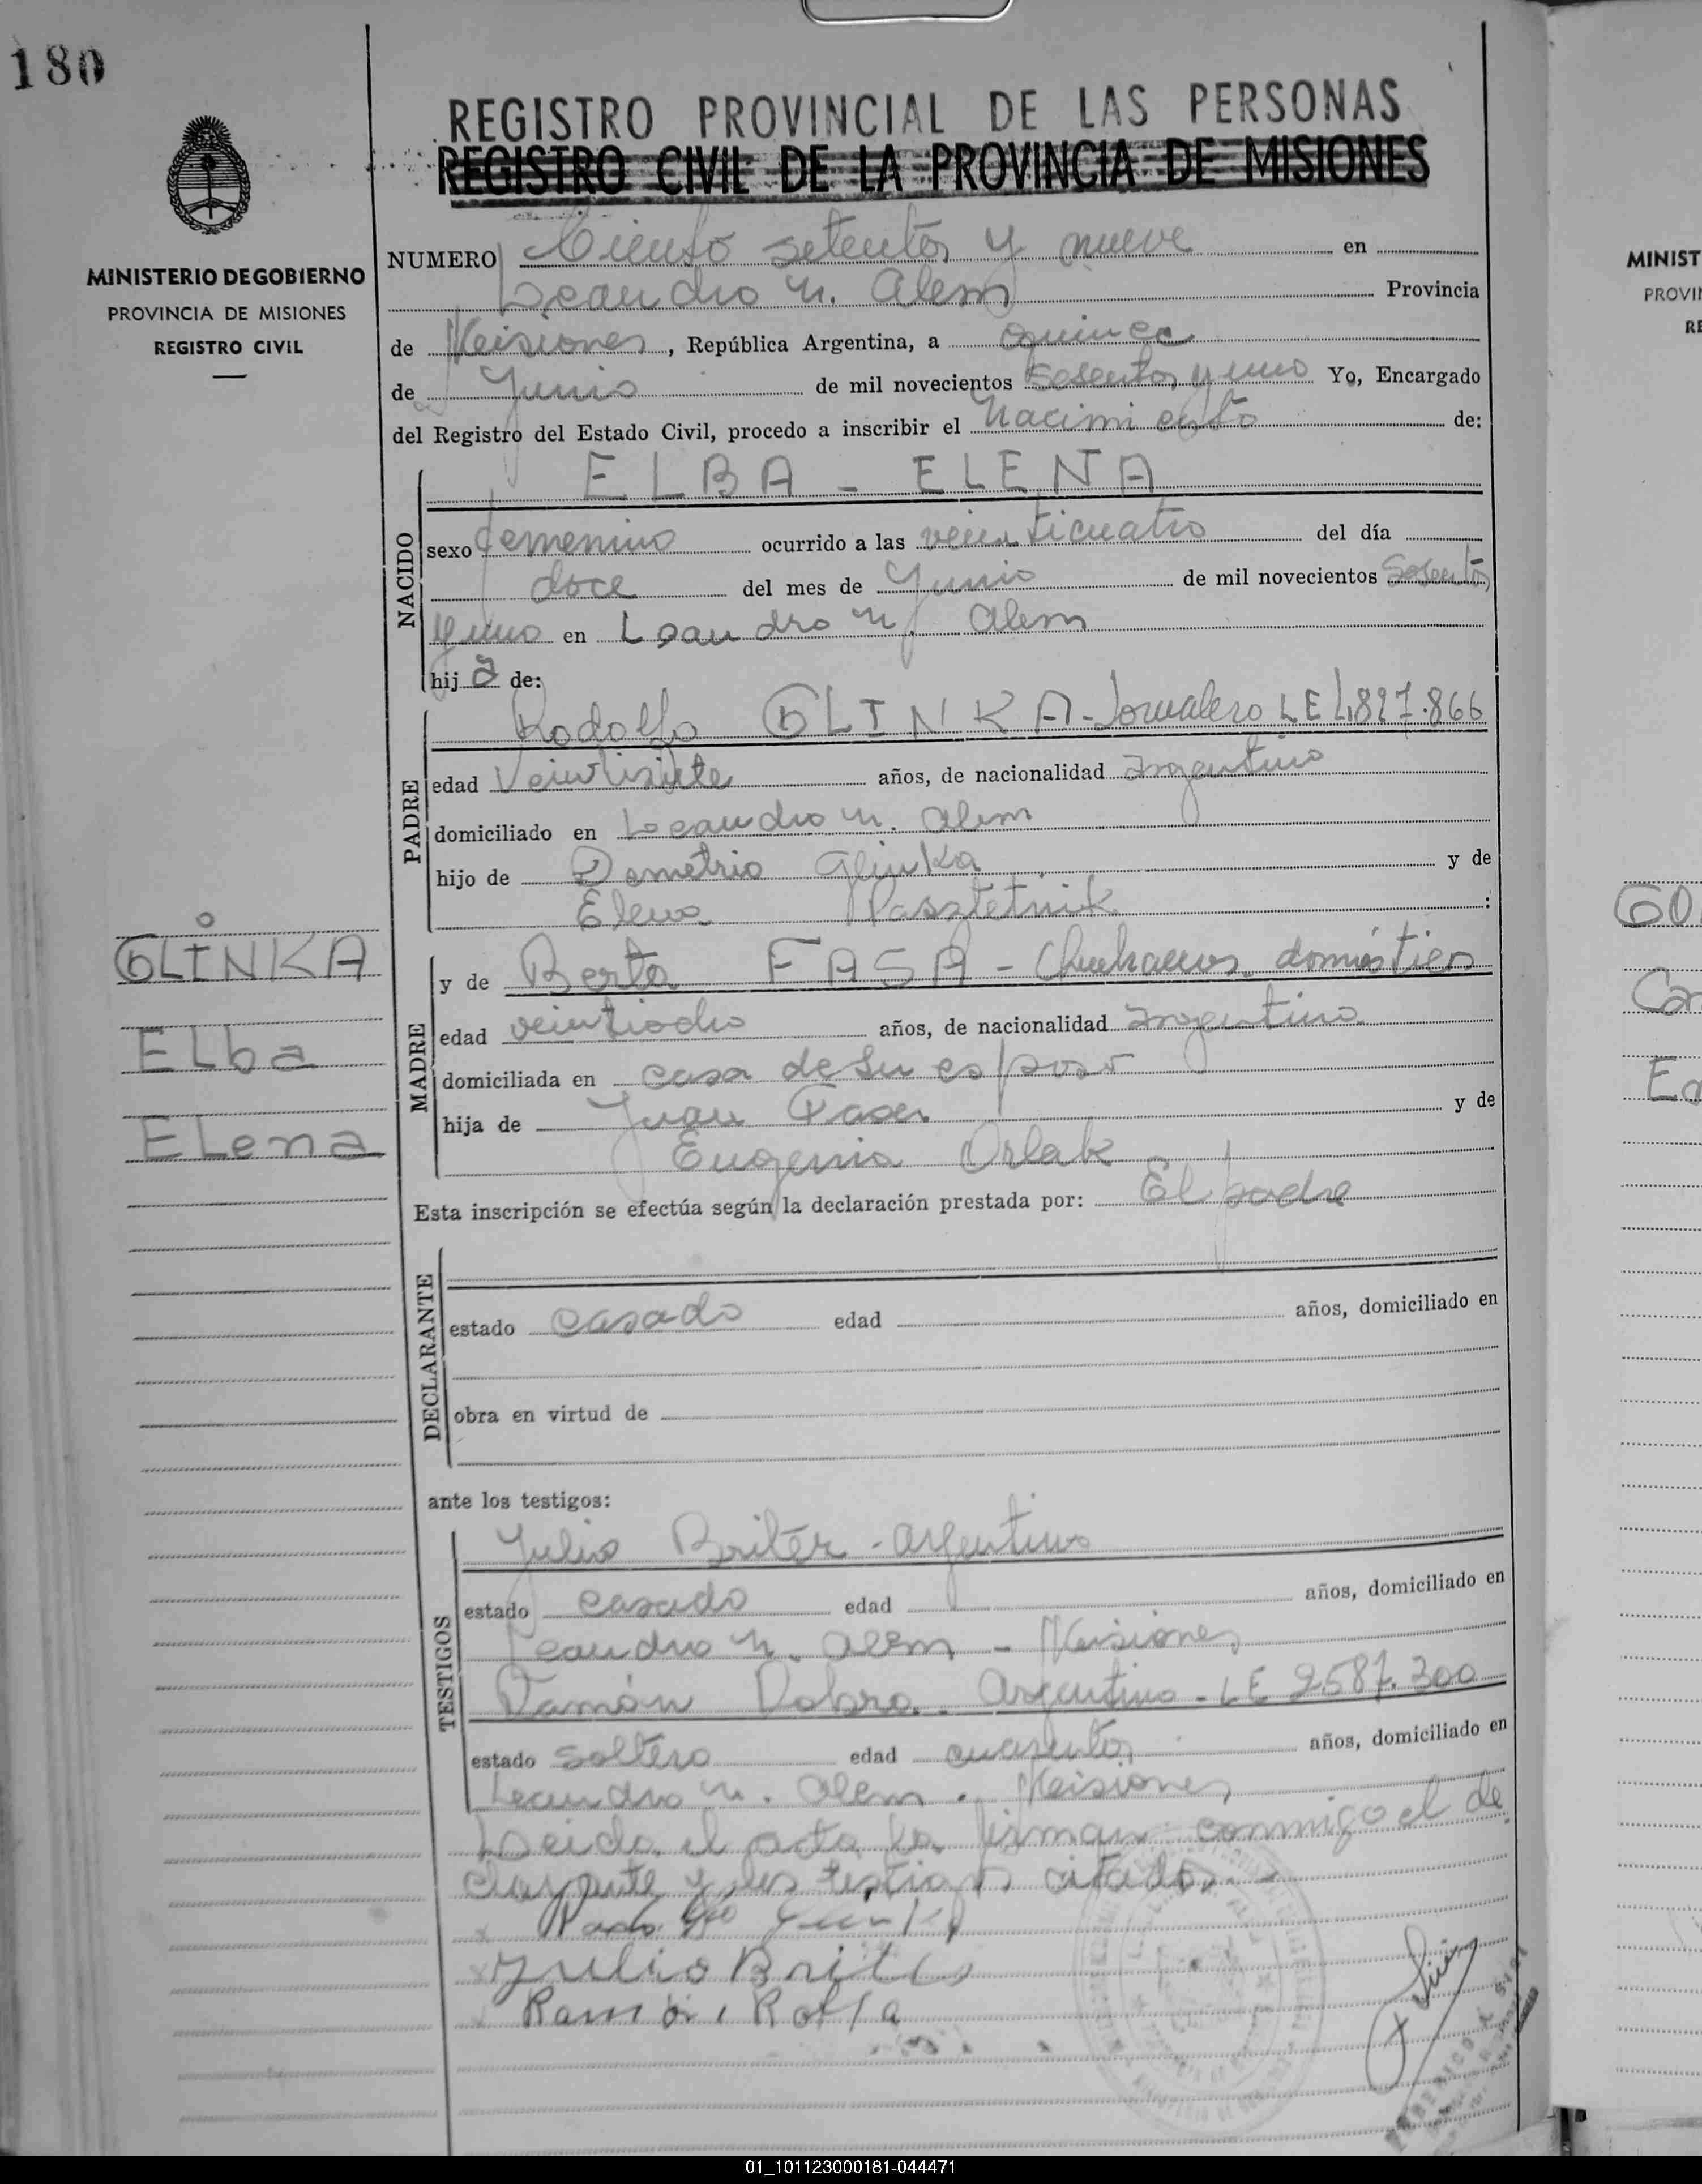 180
REGISTRO PROVINCIAL DE LAS PERSONAS
REGISTRO CIVIL DE LA PROVINCIA DE MISIONES
MINISTERIO DE GOBIERNO
PROVINCIA DE MISIONES
REGISTRO CIVIL
NUMERO Ciento setenta y nueve en
Leandro N. Alem Provincia
de Misiones, República Argentina, a quince
de Junio de mil novecientos sesenta y uno Yo, Encargado
del Registro del Estado Civil, procedo a inscribir el nacimiento de:
NACIDO
ELBA - ELENA
sexo femenino ocurrido a las veinticuatro del día
doce del mes de Junio de mil novecientos sesenta
y uno en Leandro N. Alem
hija de:
PADRE
Rodolfo GLINKA - Jornalero LE 827.866
edad veintisiete años, de nacionalidad Argentino
domiciliado en Leandro N. Alem
hijo de Demetrio Glinka y de
Elena Pasztetnik :
GLINKA
Elba
Elena
MADRE
y de Berta FASA - Quehaceres domésticos
edad veintiocho años, de nacionalidad Argentina
domiciliada en casa de su esposo
hija de Juan y de
Eugenia Orlak
Esta inscripción se efectúa según la declaración prestada por: El padre
DECLARANTE
estado casado edad años, domiciliado en
obra en virtud de
ante los testigos:
TESTIGOS
Julio Briter - Argentino
estado casado edad años, domiciliado en
Leandro N. Alem - Misiones
Ramón Argentino - LE 2587.300
estado soltero edad cuarenta años, domiciliado en
Leandro N. Alem . Misiones
Leida el acta la firman conmigo el de
clarante y los testigos citados.
Julio Brite
Ramón
MINIST
PROVIN
RE
GO
Ca
01_101123000181-044471